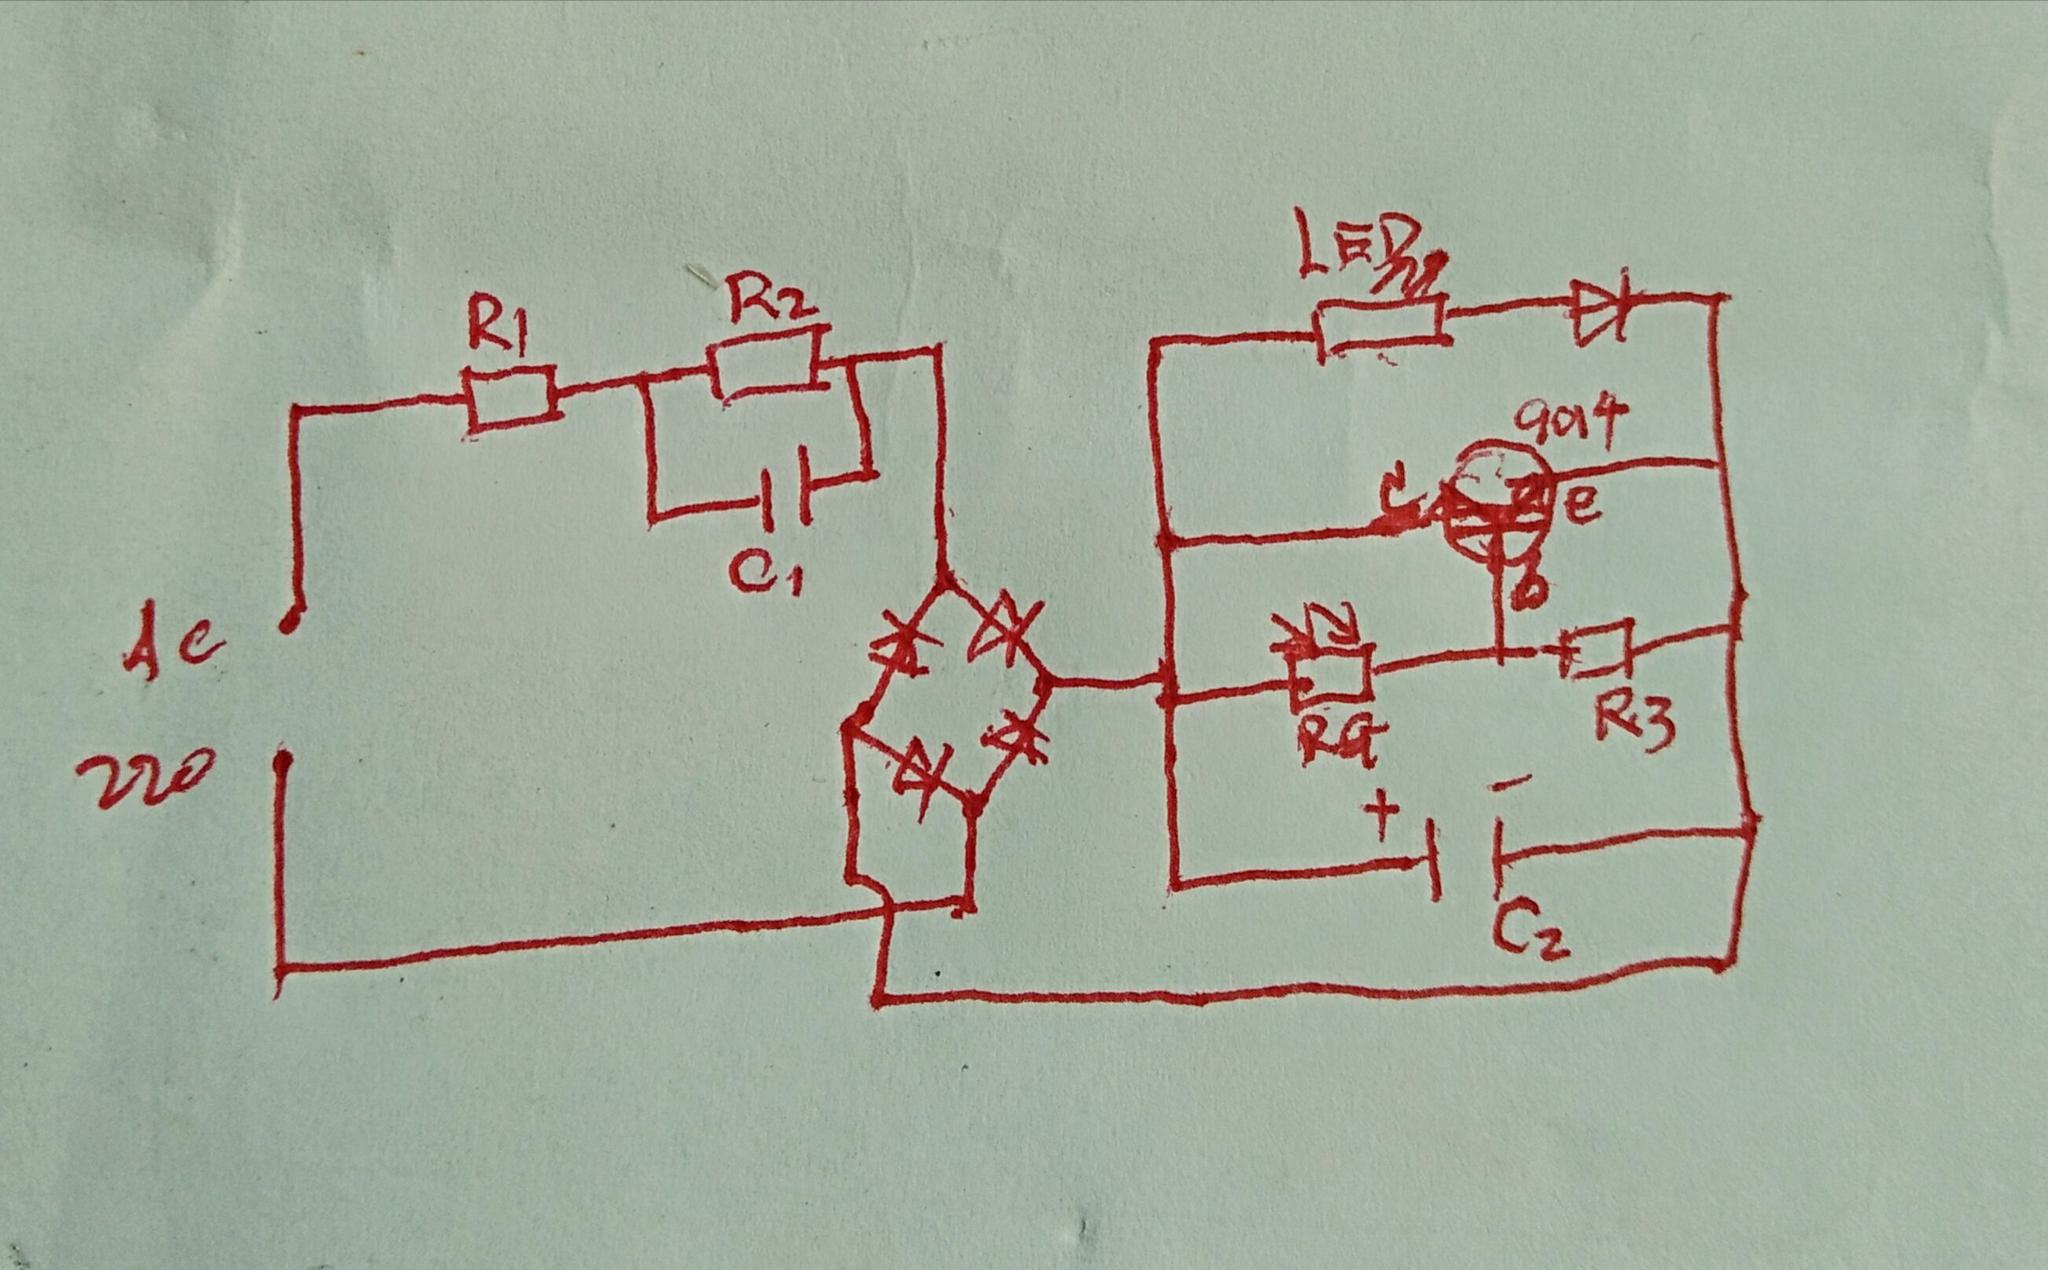 LED
R2
R1
9014
C
e
C1
b
AC
RG
R3
220
+
-
C2